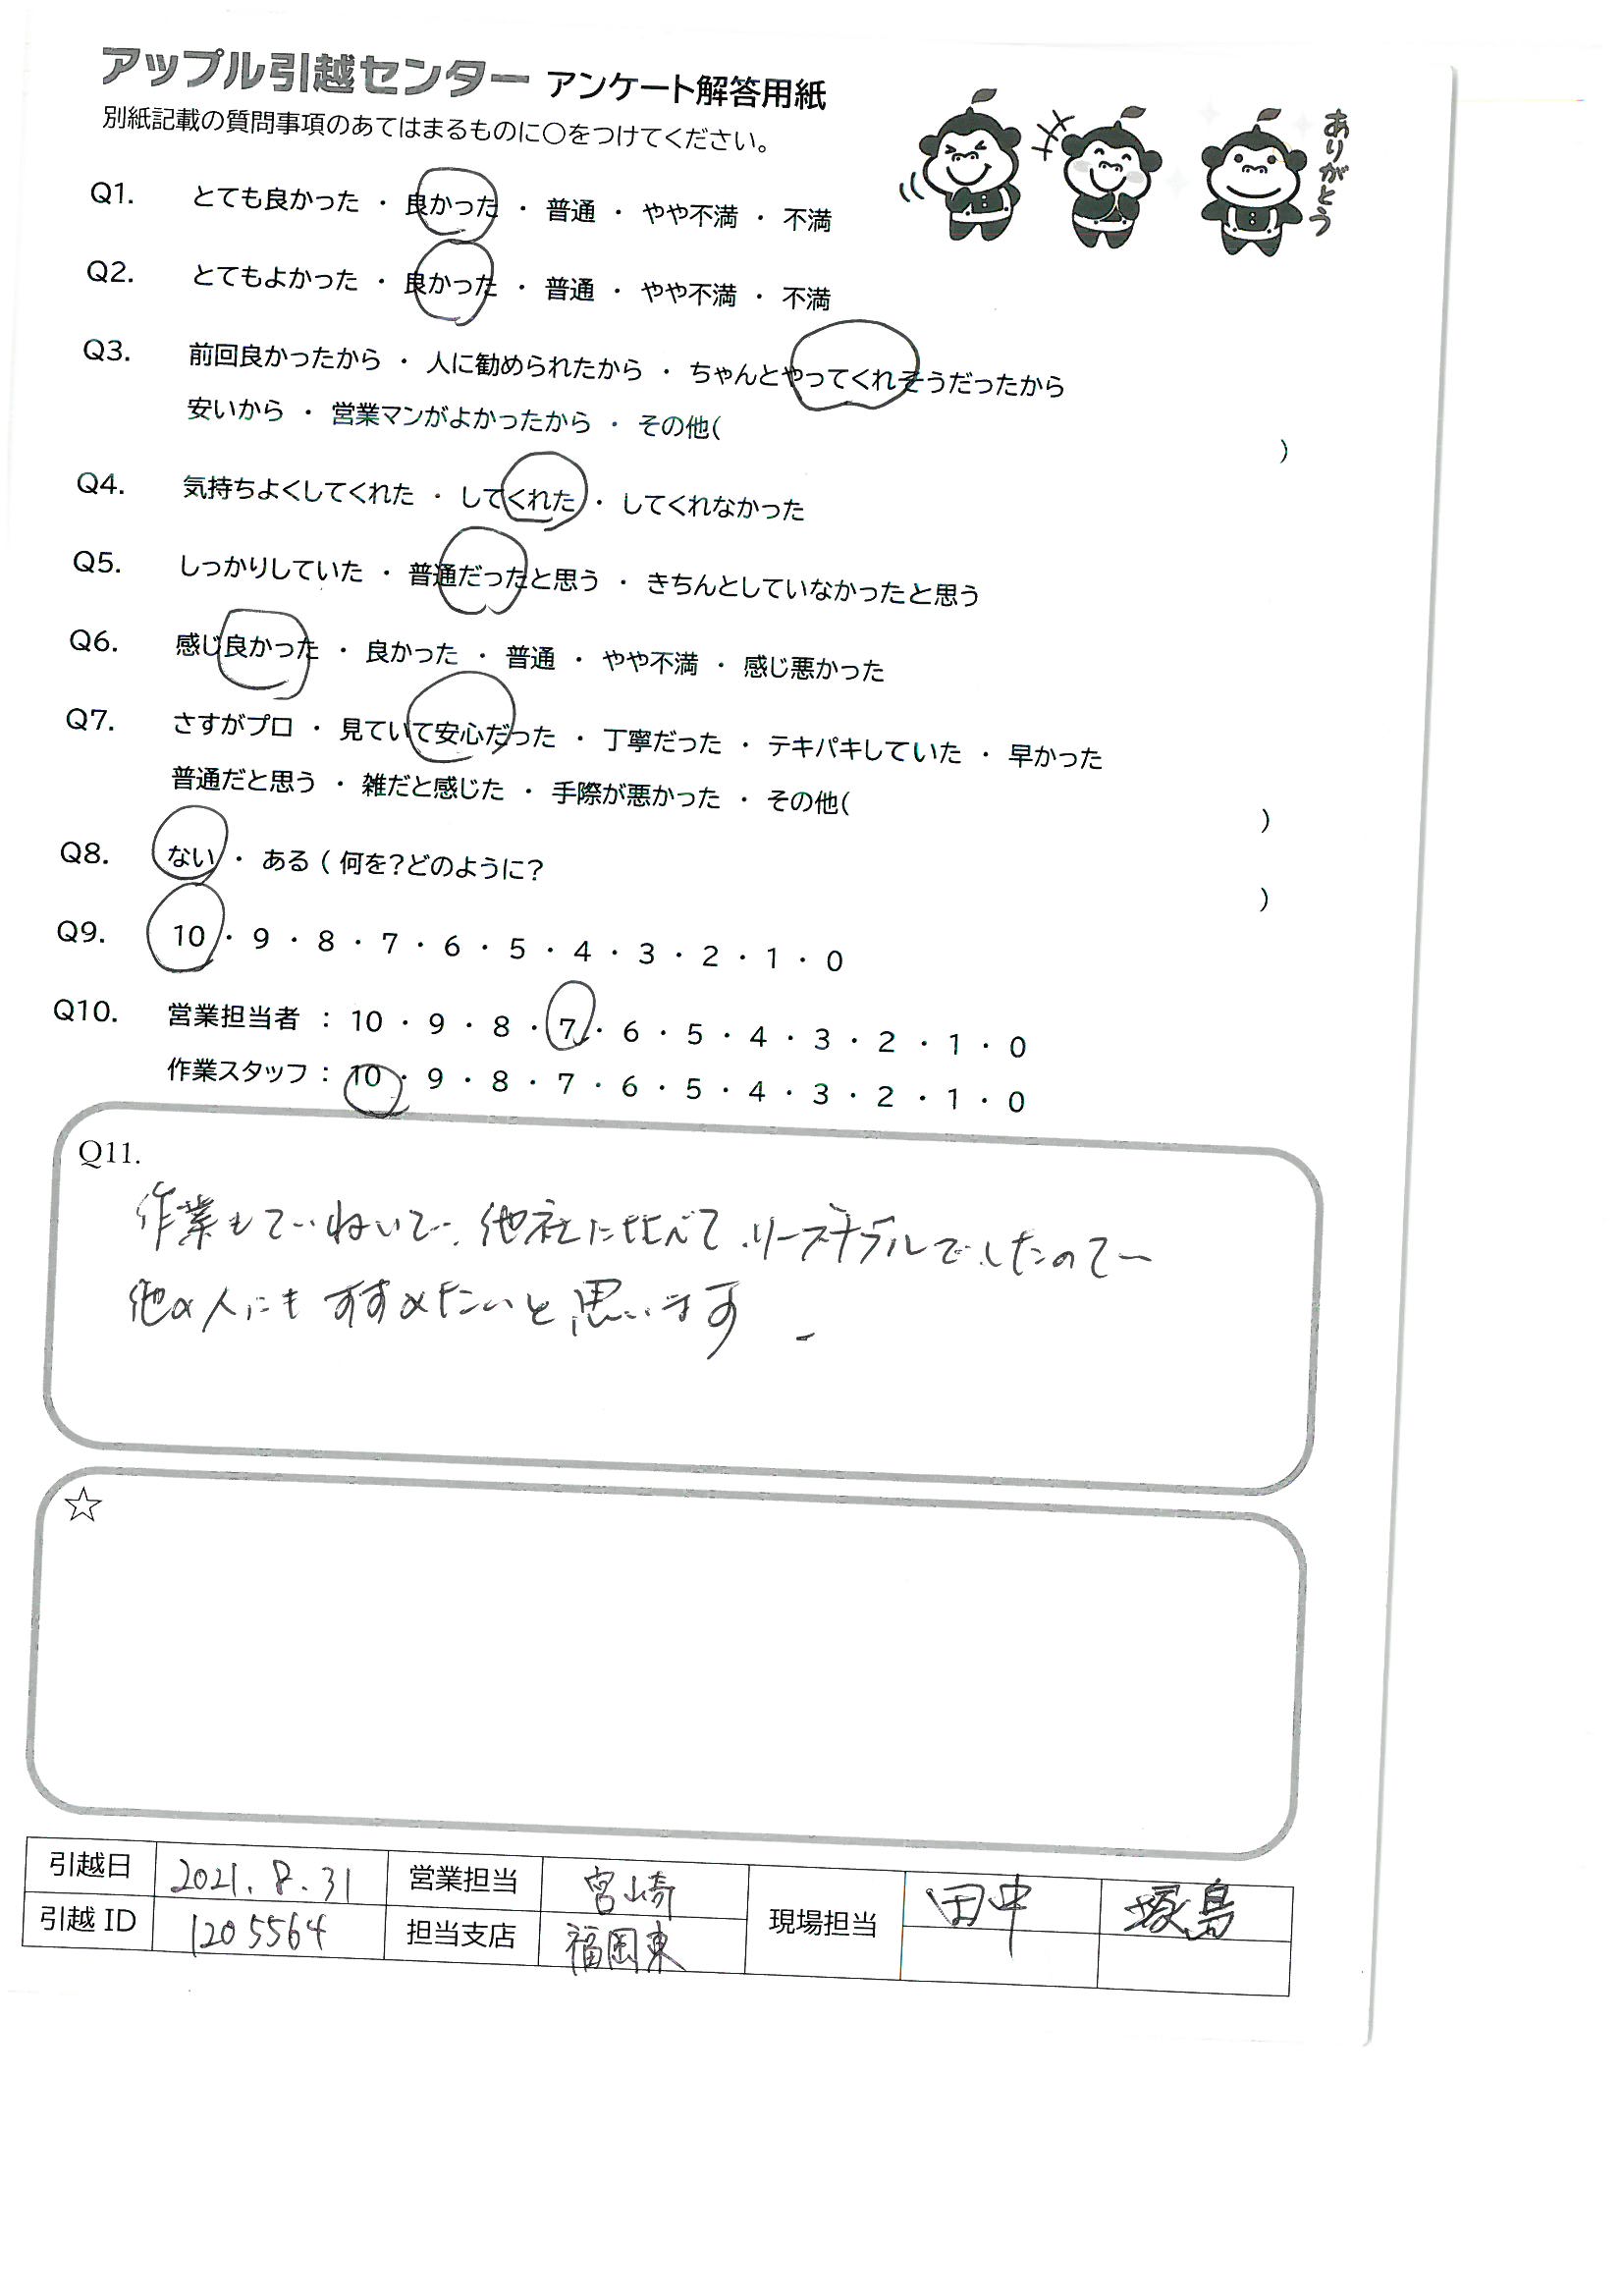 アップル引越センター アンケート解答用紙
別紙記載の質問事項のあてはまるものに〇をつけてください。
ありがとう
Q1. とても良かった ・ 良かった ・ 普通 ・ やや不満 ・ 不満
Q2. とてもよかった ・ 良かった ・ 普通 ・ やや不満 ・ 不満
Q3. 前回良かったから ・ 人に勧められたから ・ ちゃんとやってくれそうだったから
安いから ・ 営業マンがよかったから ・ その他( )
Q4. 気持ちよくしてくれた ・ してくれた ・ してくれなかった
Q5. しっかりしていた ・ 普通だったと思う ・ きちんとしていなかったと思う
Q6. 感じ良かった ・ 良かった ・ 普通 ・ やや不満 ・ 感じ悪かった
Q7. さすがプロ ・ 見ていて安心だった ・ 丁寧だった ・ テキパキしていた ・ 早かった
普通だと思う ・ 雑だと感じた ・ 手際が悪かった ・ その他( )
Q8. ない ・ ある ( 何を?どのように? )
Q9. 10 ・ 9 ・ 8 ・ 7 ・ 6 ・ 5 ・ 4 ・ 3 ・ 2 ・ 1 ・ 0
Q10. 営業担当者 : 10 ・ 9 ・ 8 ・ 7 ・ 6 ・ 5 ・ 4 ・ 3 ・ 2 ・ 1 ・ 0
作業スタッフ : 10 ・ 9 ・ 8 ・ 7 ・ 6 ・ 5 ・ 4 ・ 3 ・ 2 ・ 1 ・ 0
Q11.
作業もていねいで、他社に比べて、リーズナブルでしたので
他の人にもすすめたいと思います。
☆
引越日 2021.8.31 営業担当 宮崎 現場担当 田中
引越 ID 1205564 担当支店 福岡東